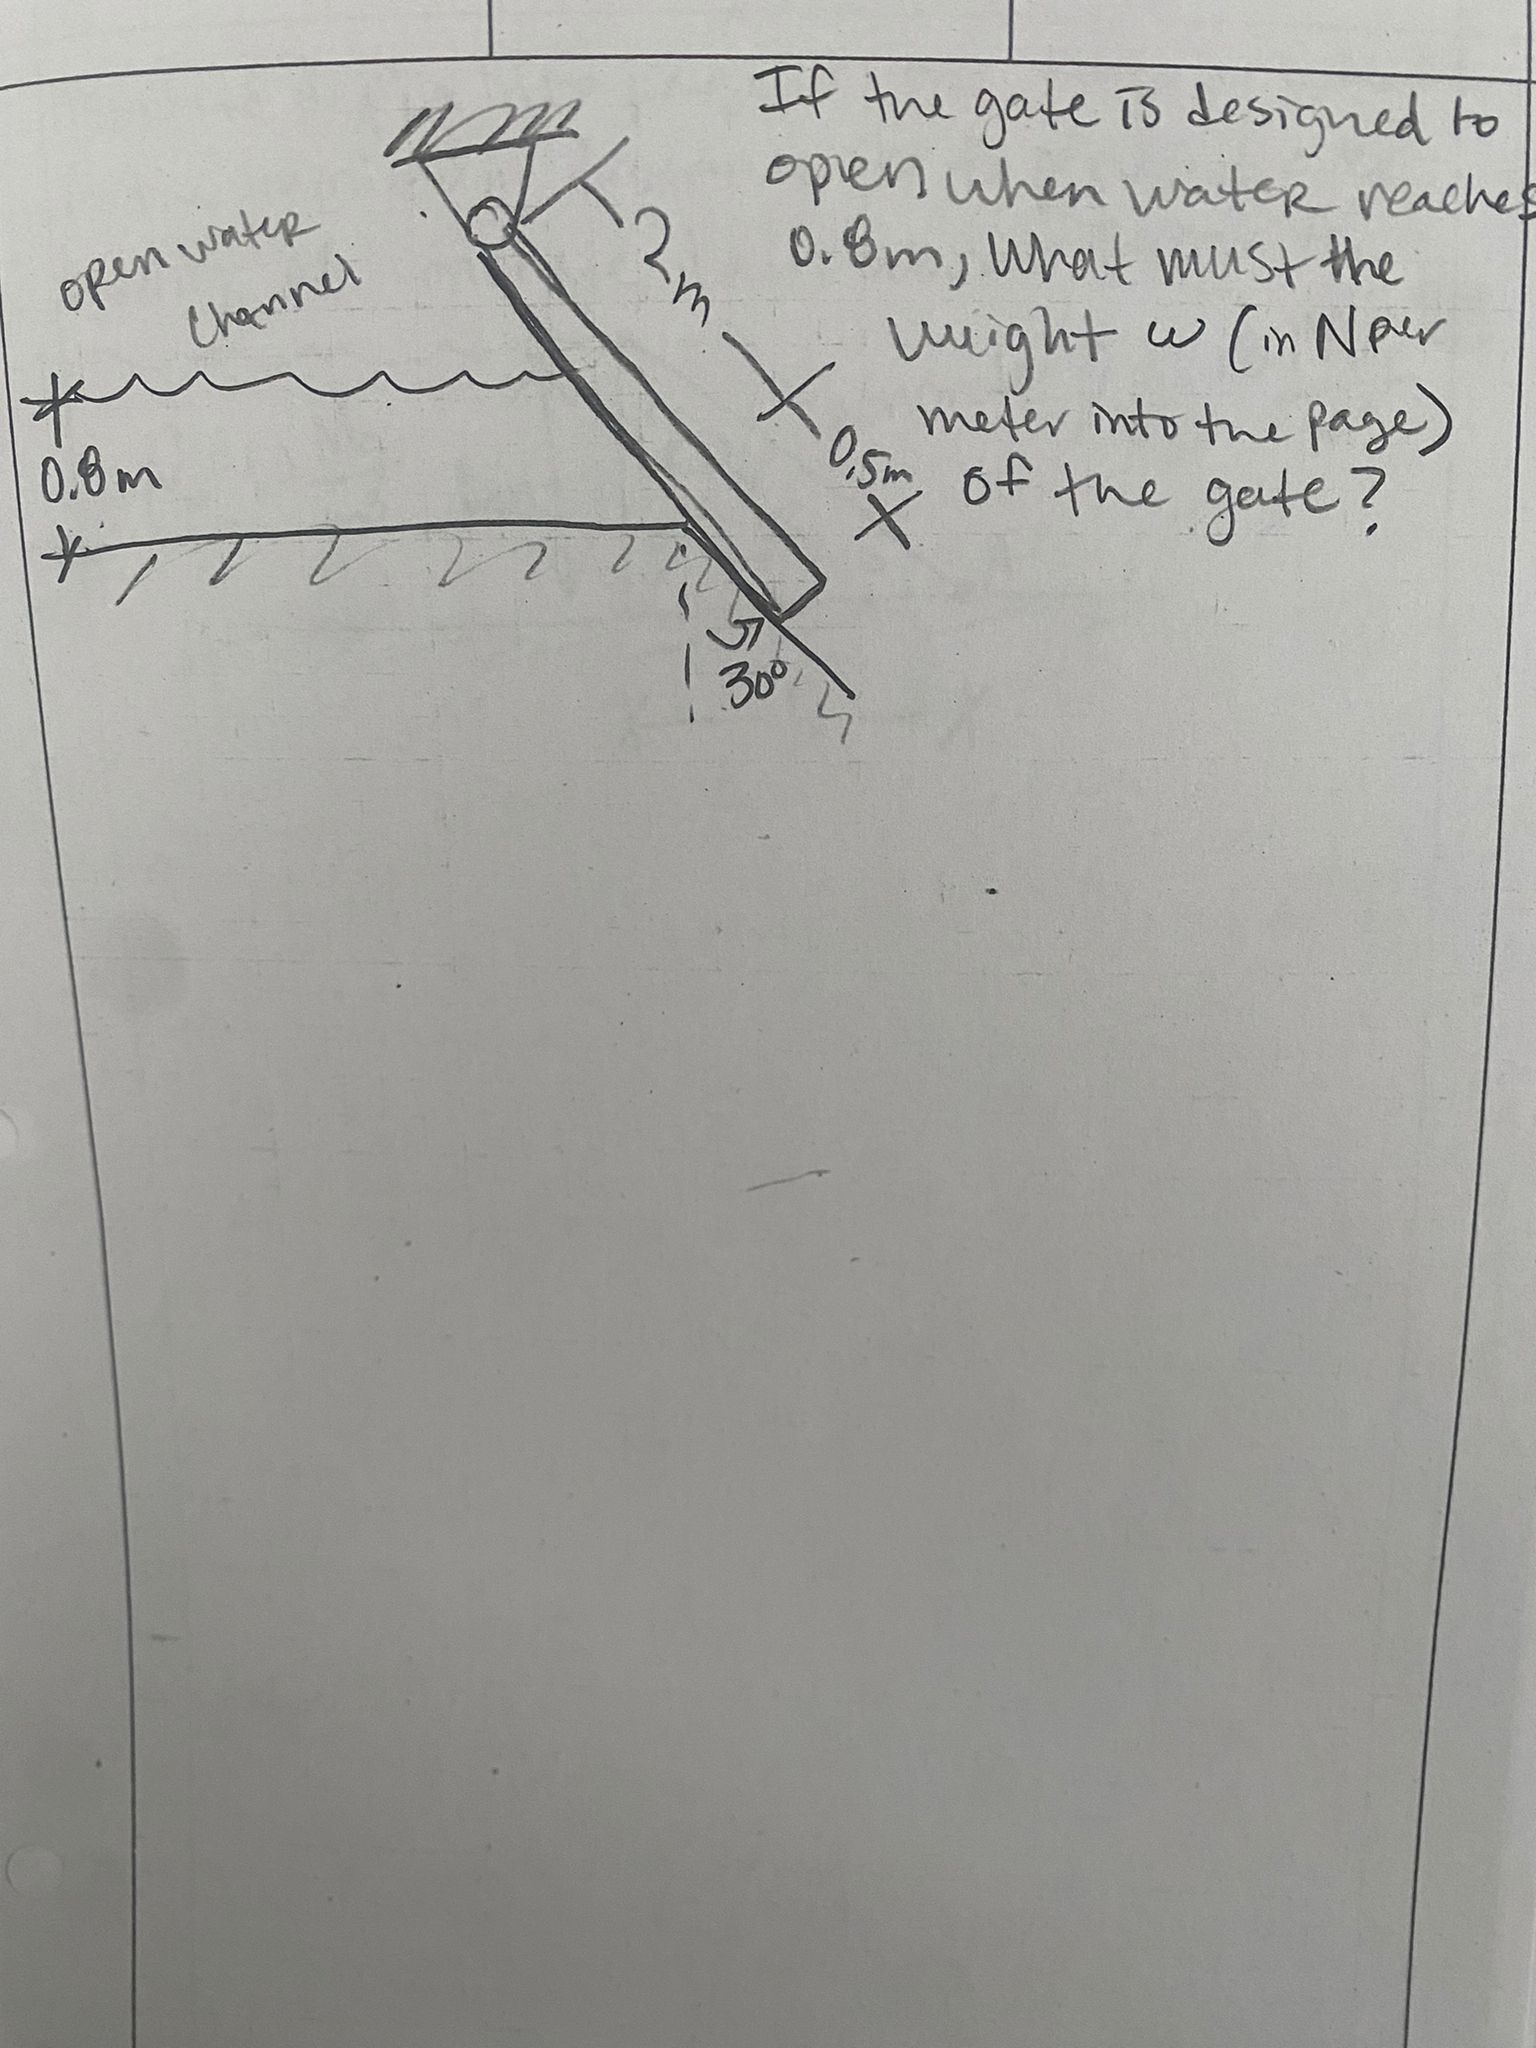 If the gate is designed to
open when water reaches
0.8m, what must the
weight w (in N per
meter into the page)
of the gate?
open water
channel
2m
0.5m
0.8m
30°